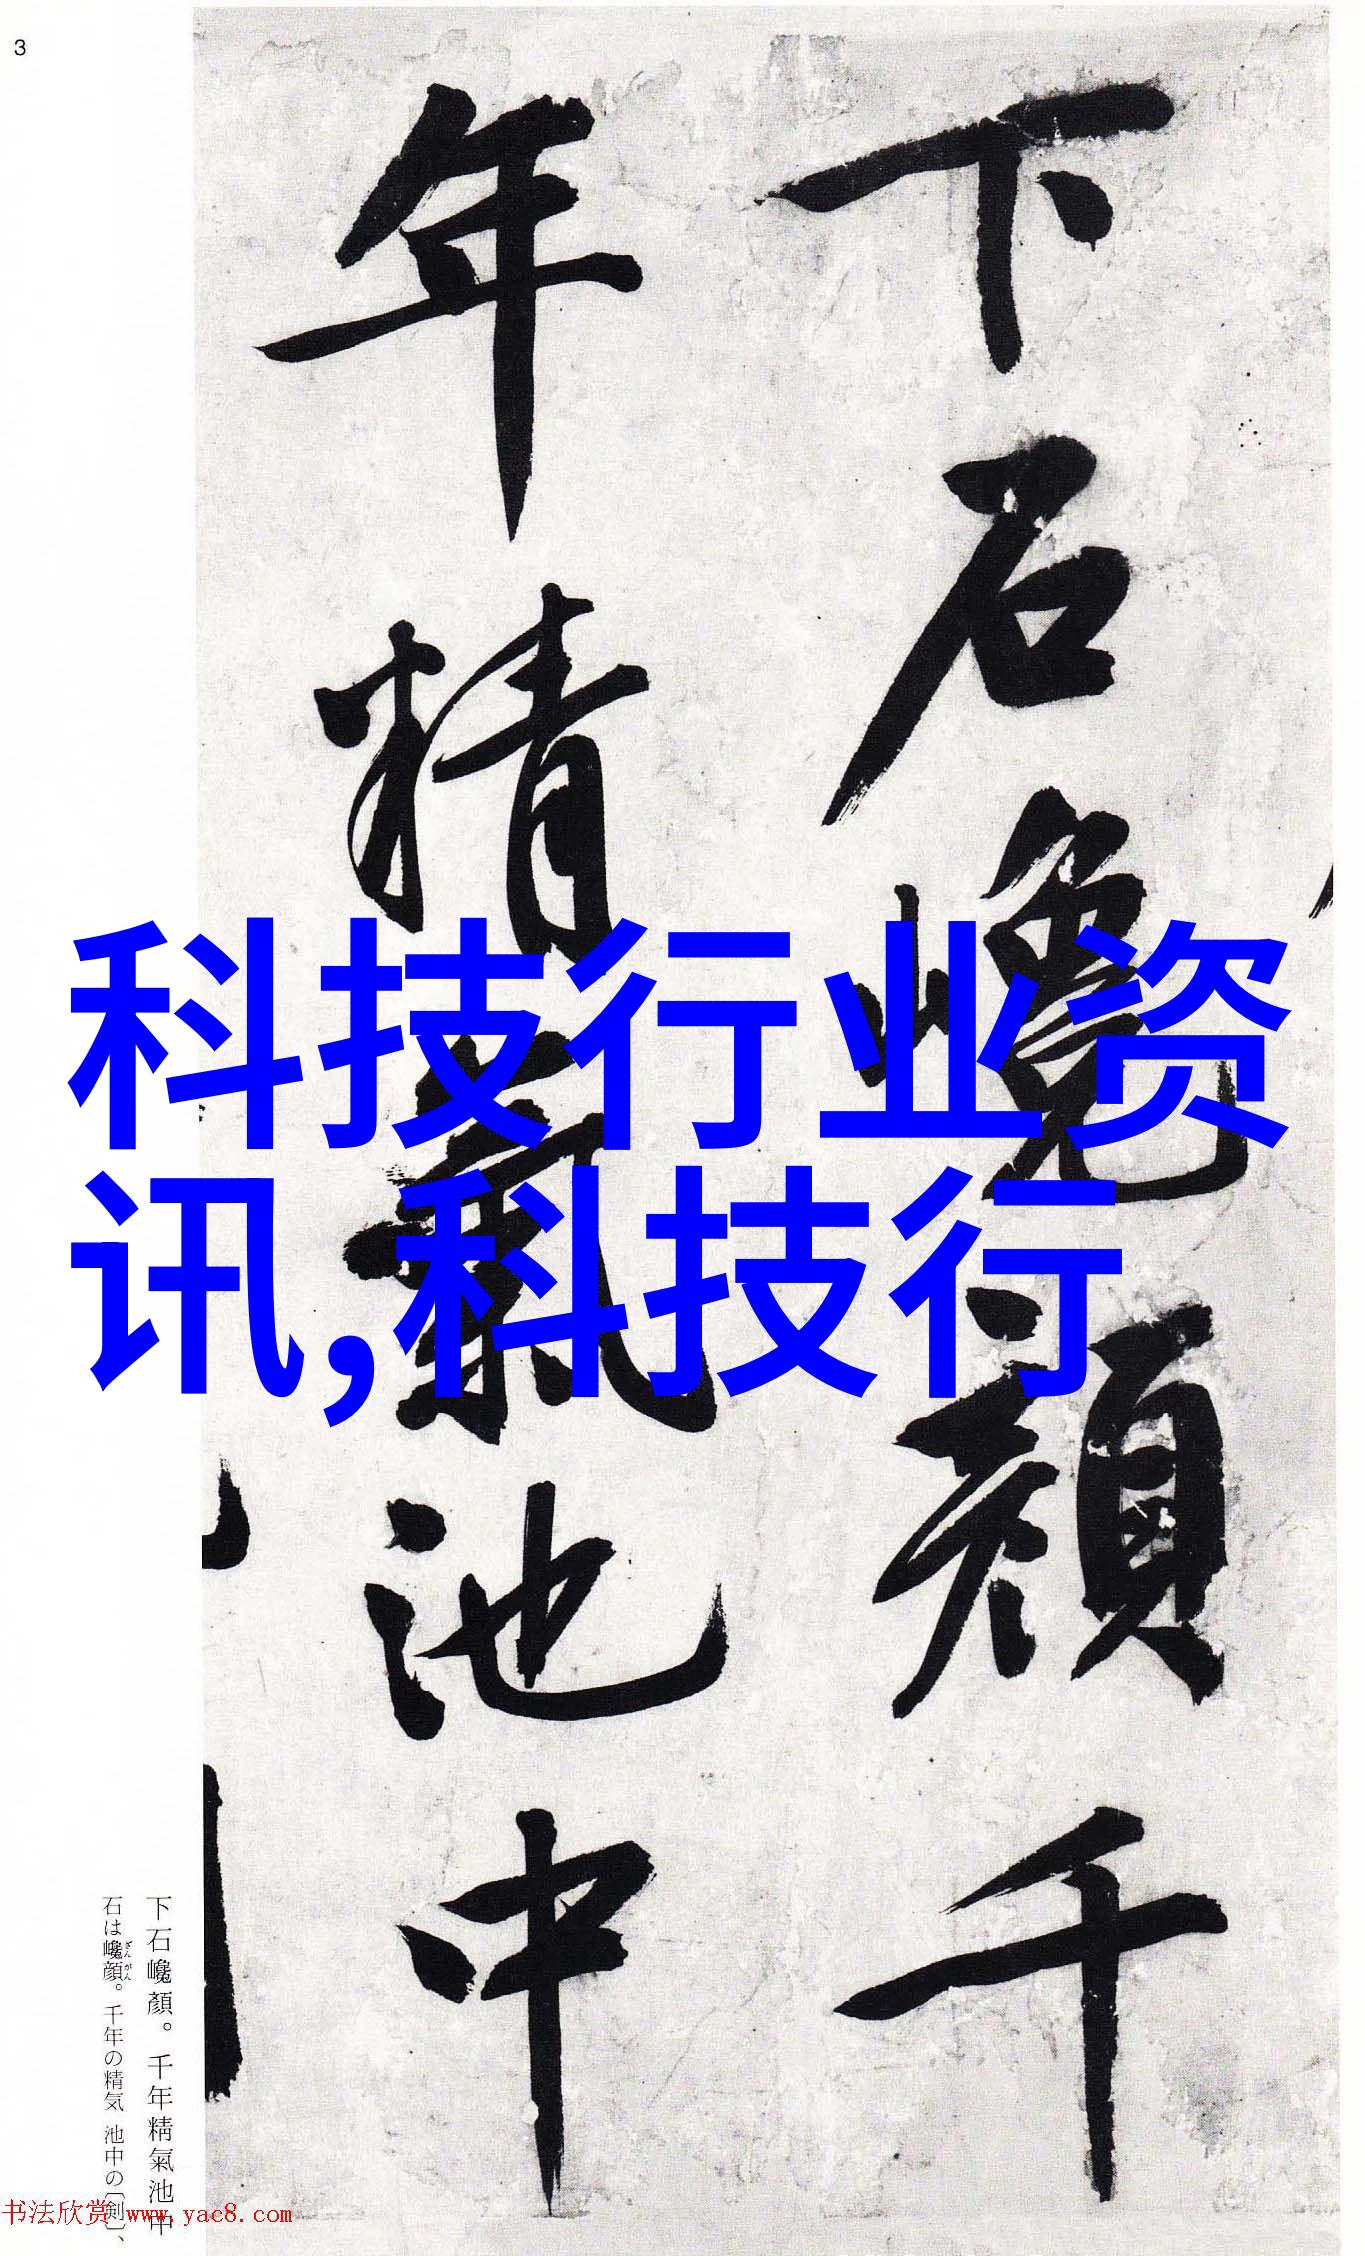 3
下石巉顏千
年精氣池中
科技行业资
讯,科技行
下石巉顏。千年精氣池中
石は巉顔。千年の精気 池中の〔剣〕、
书法欣赏 www.yac8.com